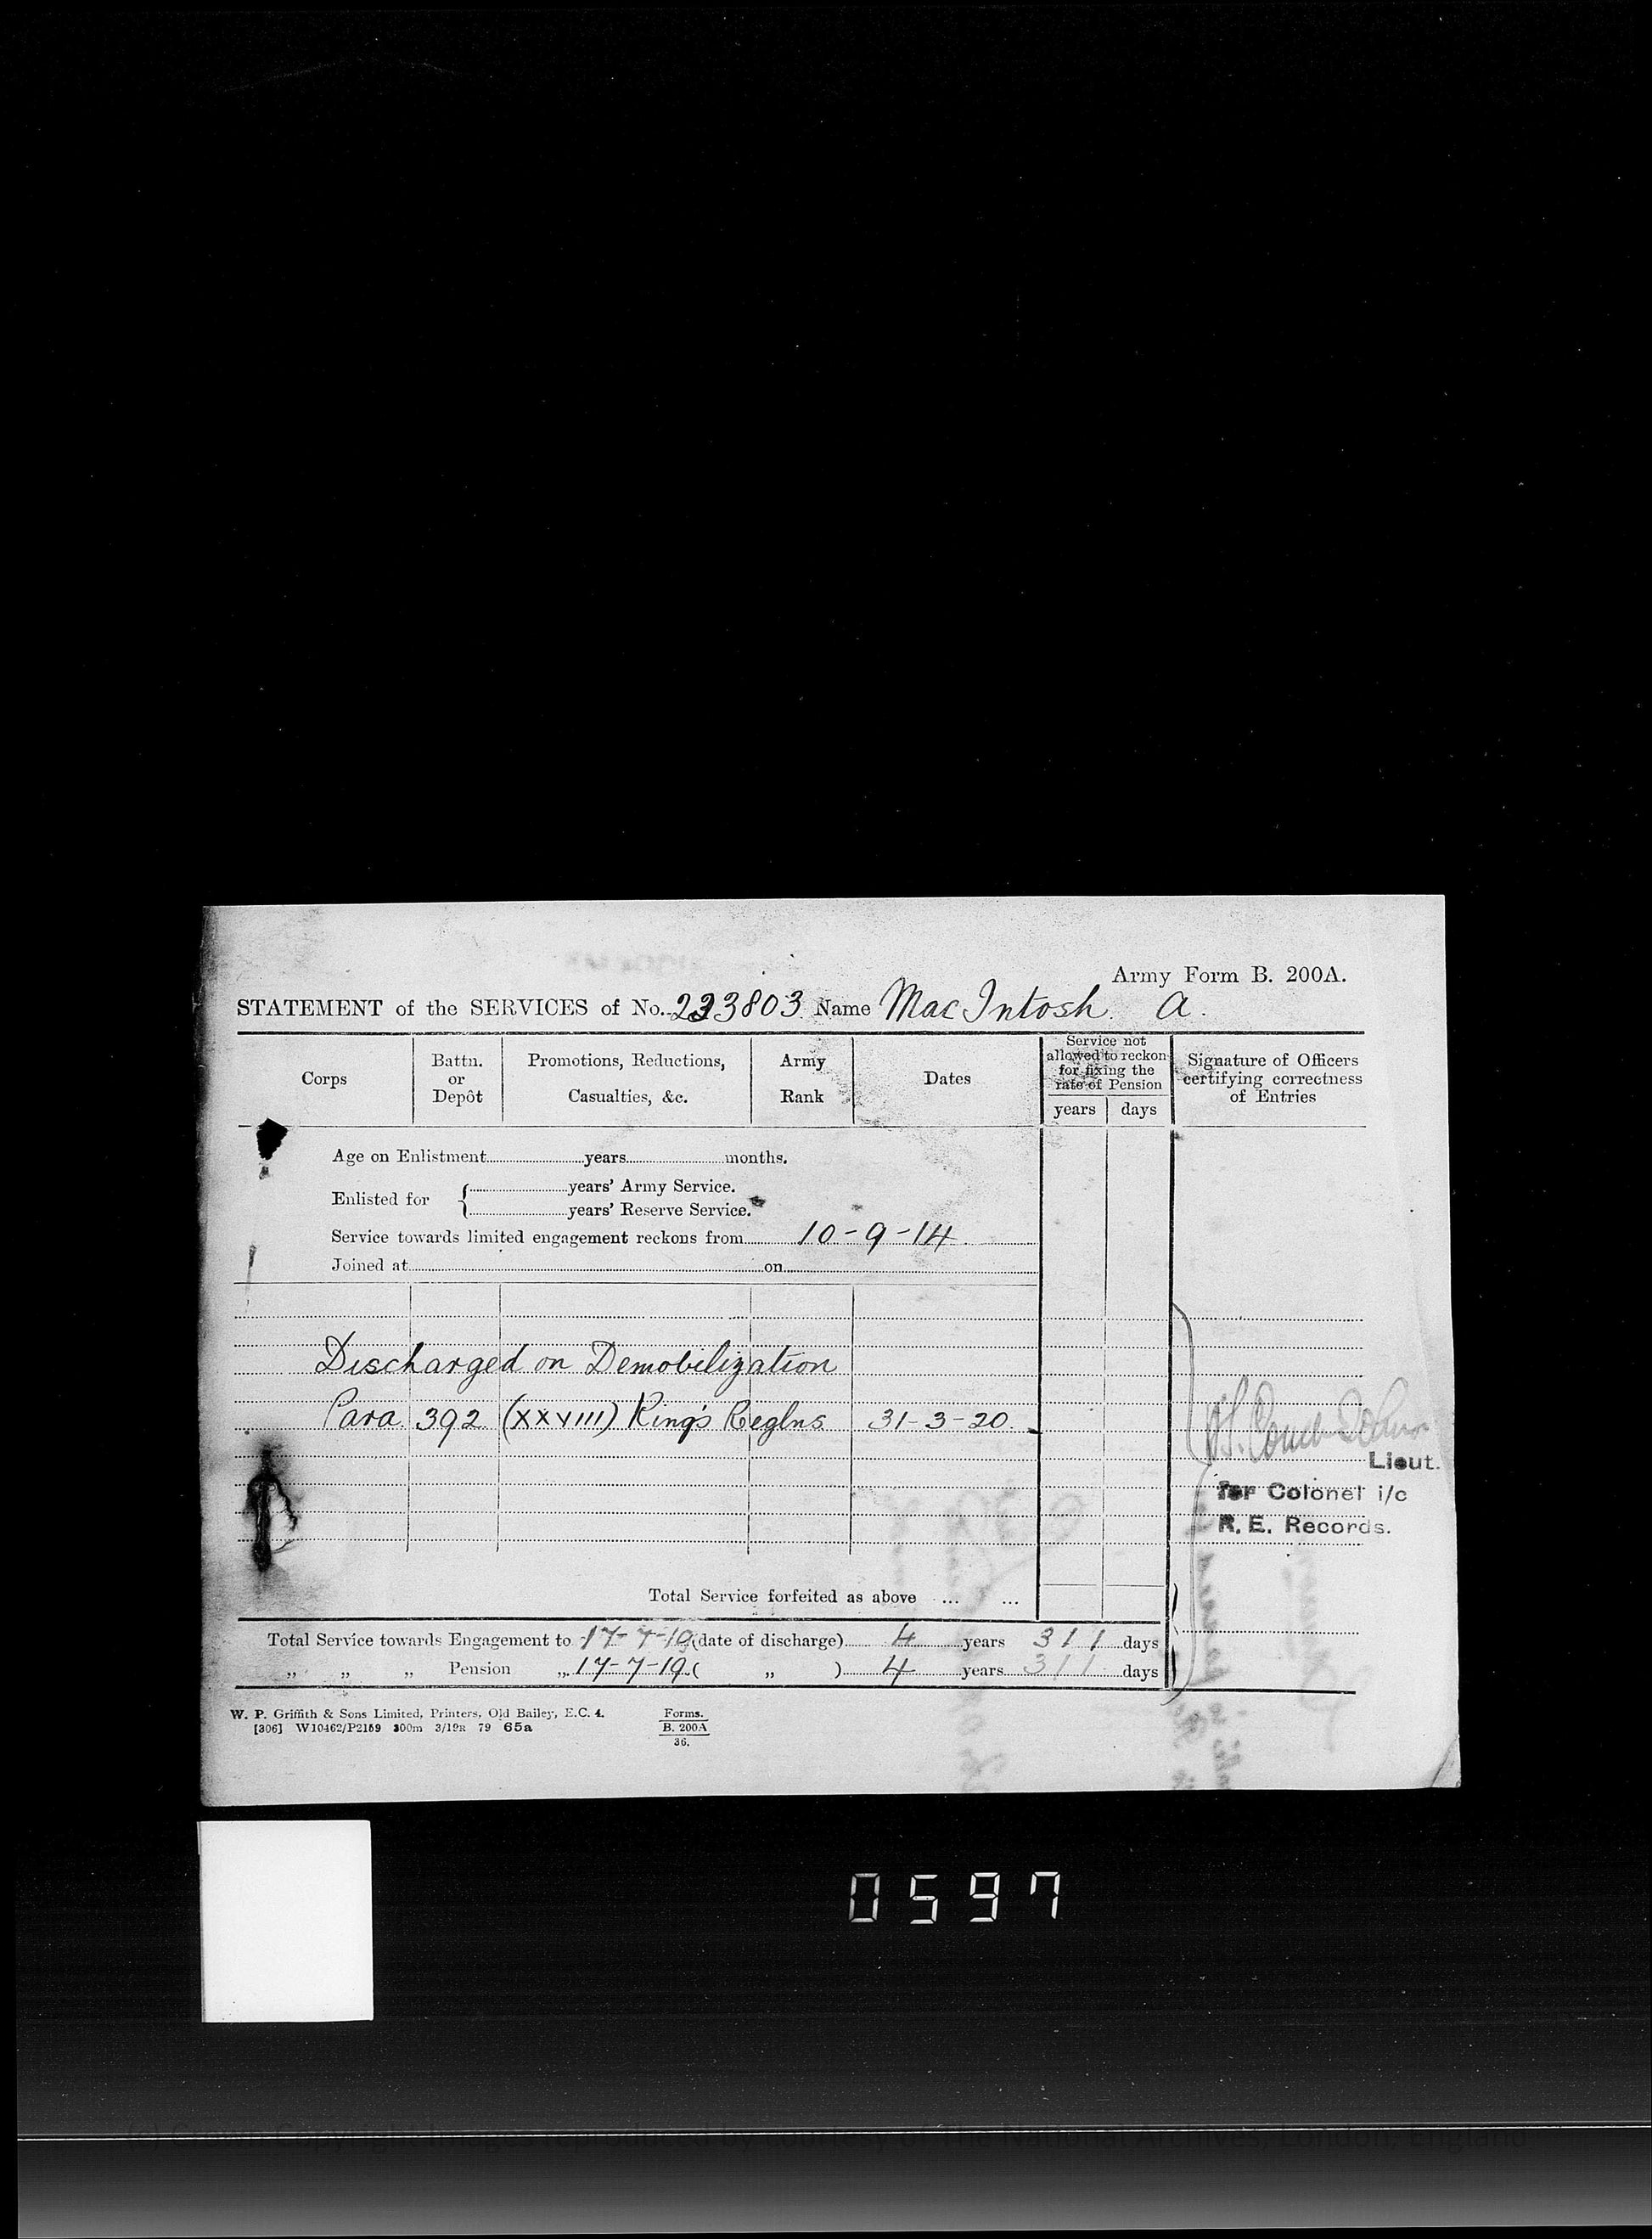 Army Form B. 200A.
STATEMENT of the SERVICES of No. 223803 Name MacIntosh. A.
Corps
Battn. or Depôt
Promotions, Reductions, Casualties, &c.
Army Rank
Dates
Service not allowed to reckon for fixing the rate of Pension
years days
Signature of Officers certifying correctness of Entries
Age on Enlistment years months.
Enlisted for { years' Army Service.
years' Reserve Service.
Service towards limited engagement reckons from 10-9-14
Joined at on
Discharged on Demobilization
Para. 392 (XXVIII) King's Reglns 31-3-20.
Lieut.
for Colonel i/c
R. E. Records.
Total Service forfeited as above ... ...
Total Service towards Engagement to 17-7-19 (date of discharge) 4 years 311 days
„ „ „ Pension „ 17-7-19 ( „ ) 4 years 311 days
W. P. Griffith & Sons Limited, Printers, Old Bailey, E.C. 4.
[306] W10462/P2159 300m 3/19R 79 65a
Forms.
B. 200A
36.
0597
(c) Crown Copyright Images reproduced by courtesy of The National Archives, London, England